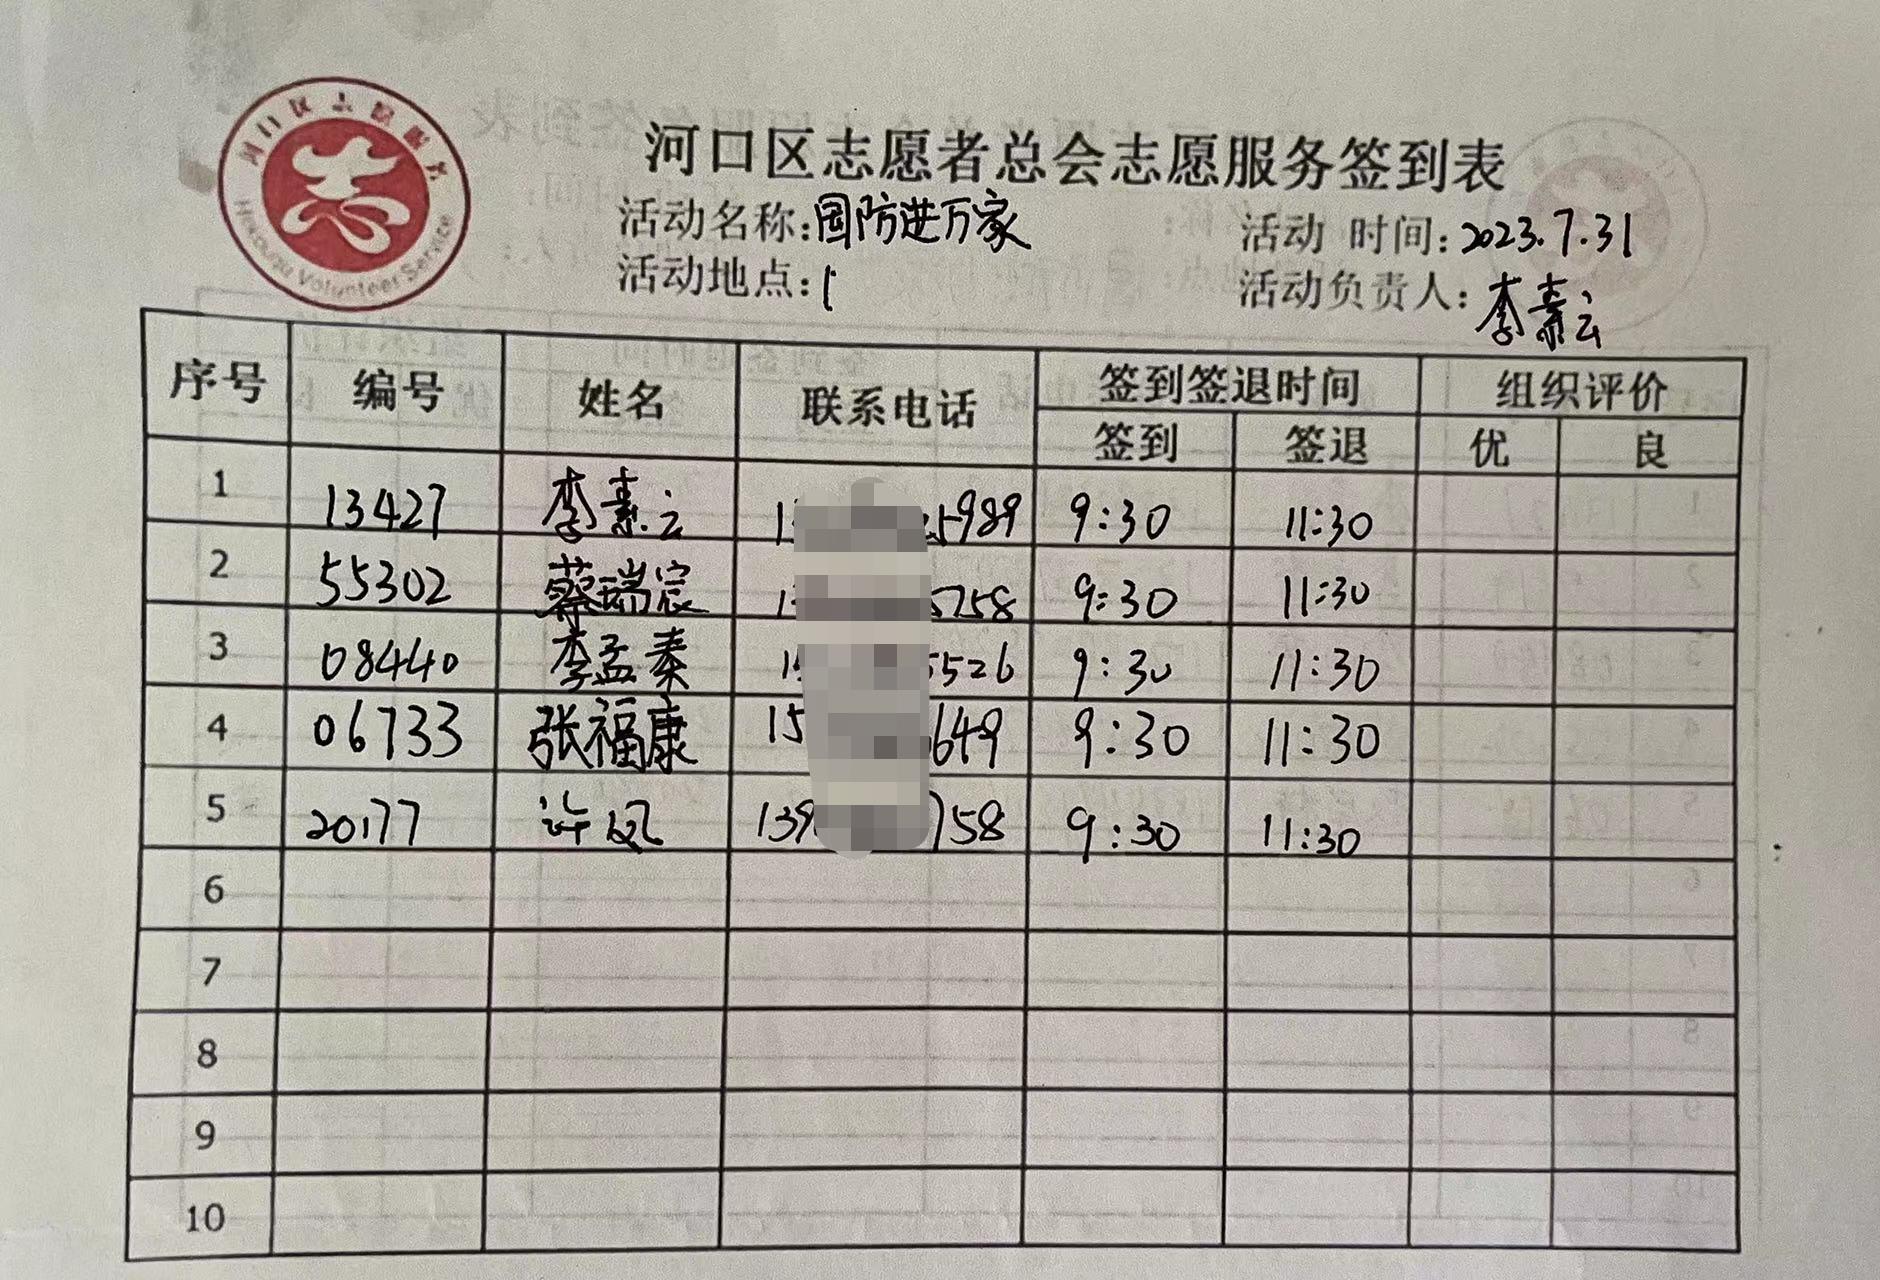 河口区志愿服务
Hekouqu Volunteer Service
河口区志愿者总会志愿服务签到表
活动名称:国防进万家 活动 时间:2023.7.31
活动地点: 活动负责人:李素云
序号 编号 姓名 联系电话 签到签退时间 组织评价
签到 签退 优 良
1 13427 李素云 1 5989 9:30 11:30
2 55302 蔡瑞宸 1 5758 9:30 11:30
3 08440 李孟秦 1 5526 9:30 11:30
4 06733 张福康 15 649 9:30 11:30
5 20177 许凤 139 758 9:30 11:30
6
7
8
9
10